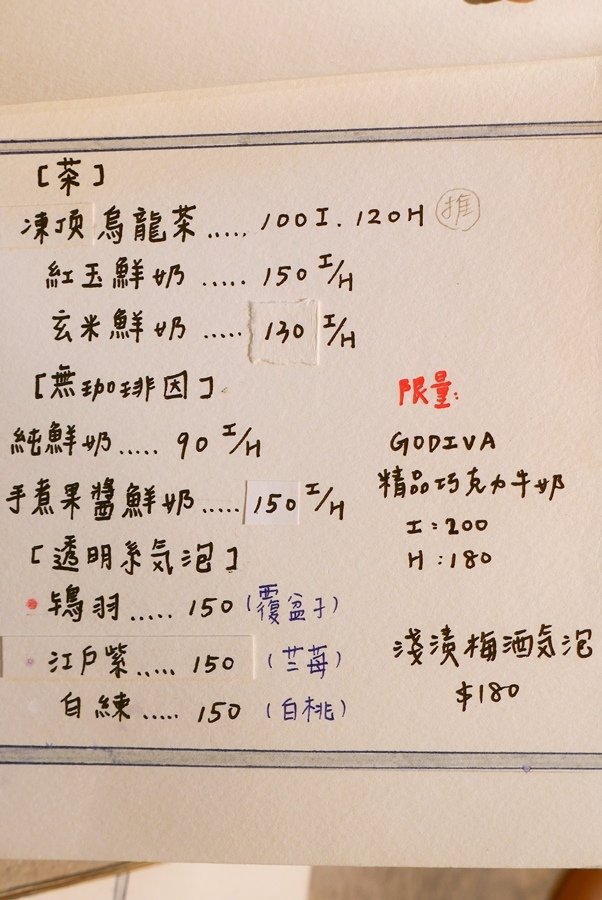 [茶]
凍頂烏龍茶.....100I.120H 推
紅玉鮮奶.....150 I/H
玄米鮮奶.....130 I/H
[無珈琲因]
純鮮奶.....90 I/H
手煮果醬鮮奶.....150 I/H
[透明系気泡]
鴇羽.....150(覆盆子)
江戶紫.....150(苎莓)
白練.....150(白桃)
限量:
GODIVA
精品巧克力牛奶
I:200
H:180
淺漬梅酒気泡
$180